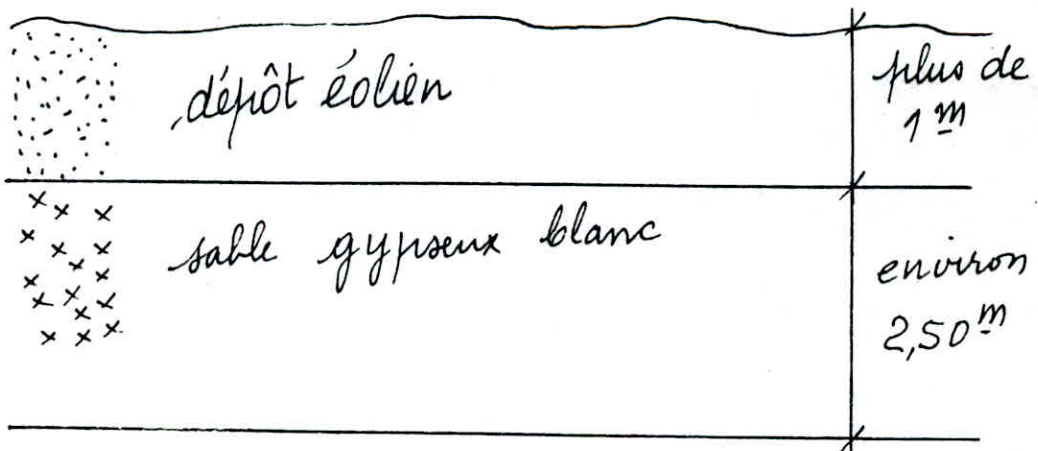 dépôt éolien
plus de
1 m
sable gypseux blanc
environ
2,50 m